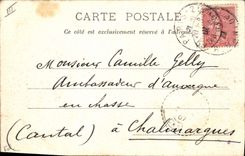 CARTE POSTALE
Ce côté est exclusivement réservé à l'adresse
Monsieur Camille Gelly
Ambassadeur d'Auvergne
en chasse
(Cantal) à Chalinargues